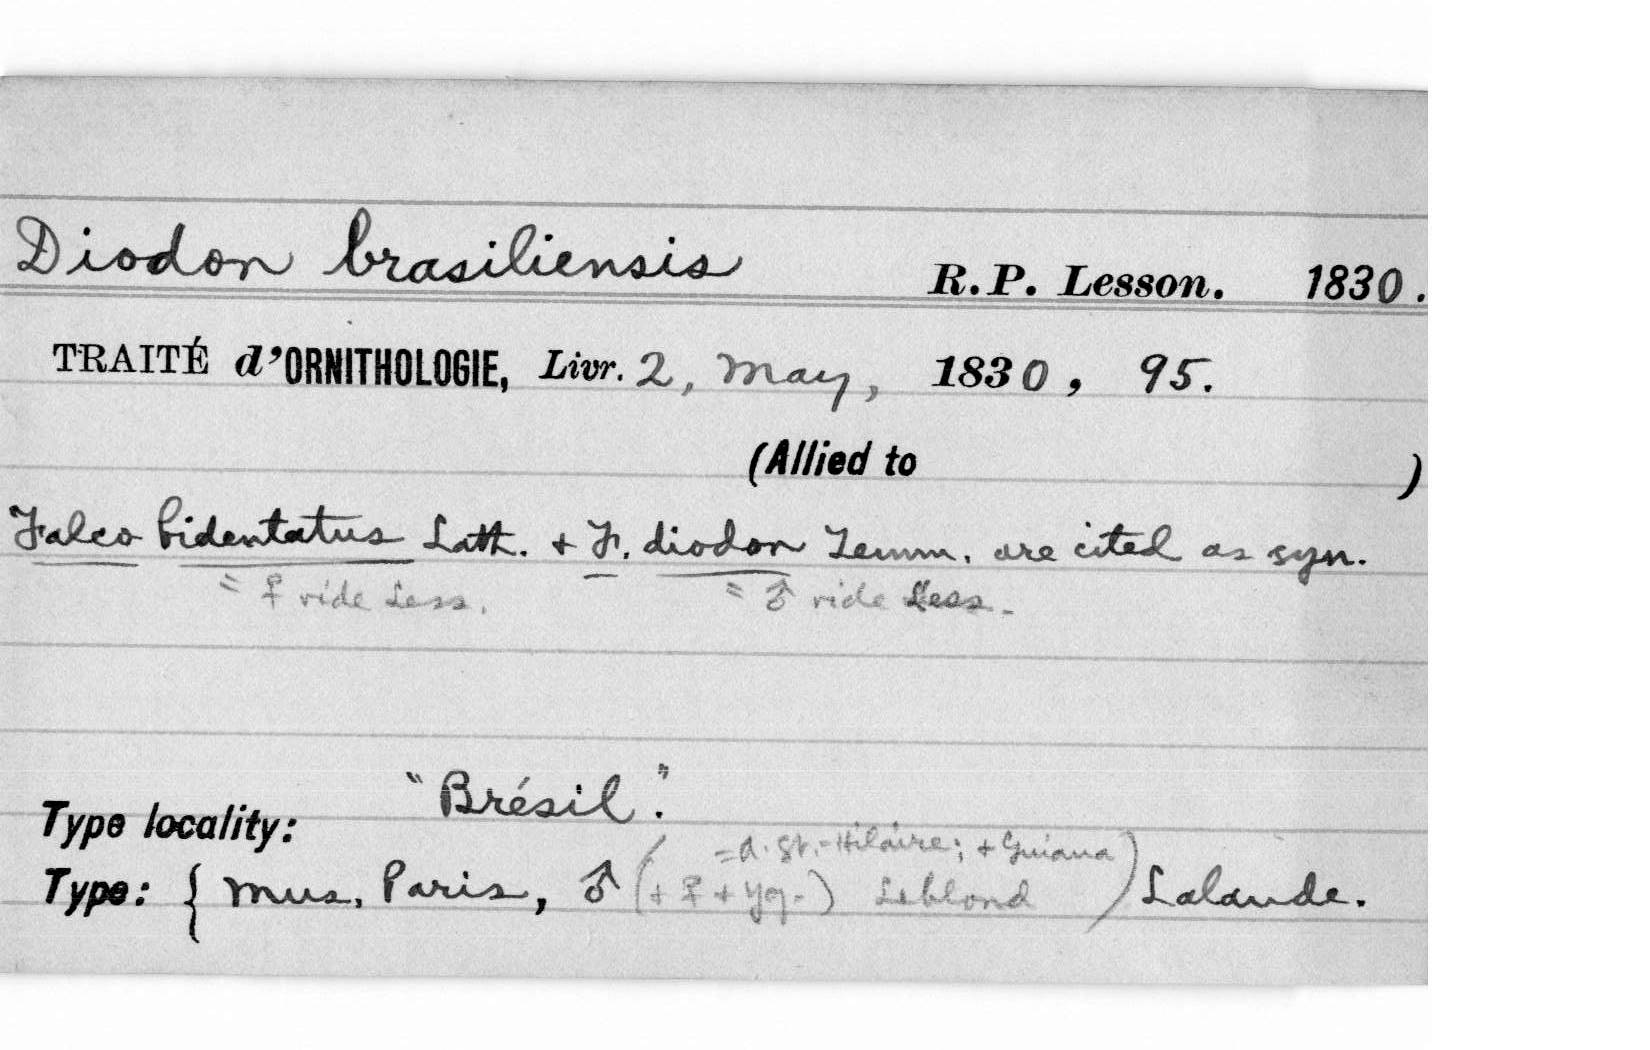 Diodon brasiliensis R.P. Lesson. 1830.
TRAITÉ d'ORNITHOLOGIE, Livr. 2, May, 1830, 95.
(Allied to )
Falco bidentatus Lath. + F. diodon Temm. are cited as syn.
= ♀ vide Less. = ♂ vide Less.
Type locality: "Brésil".
(= A. St.-Hilaire; + Guiana
Type: { Mus. Paris, ♂ (+ ♀ + yg.) Leblond) Lalande.